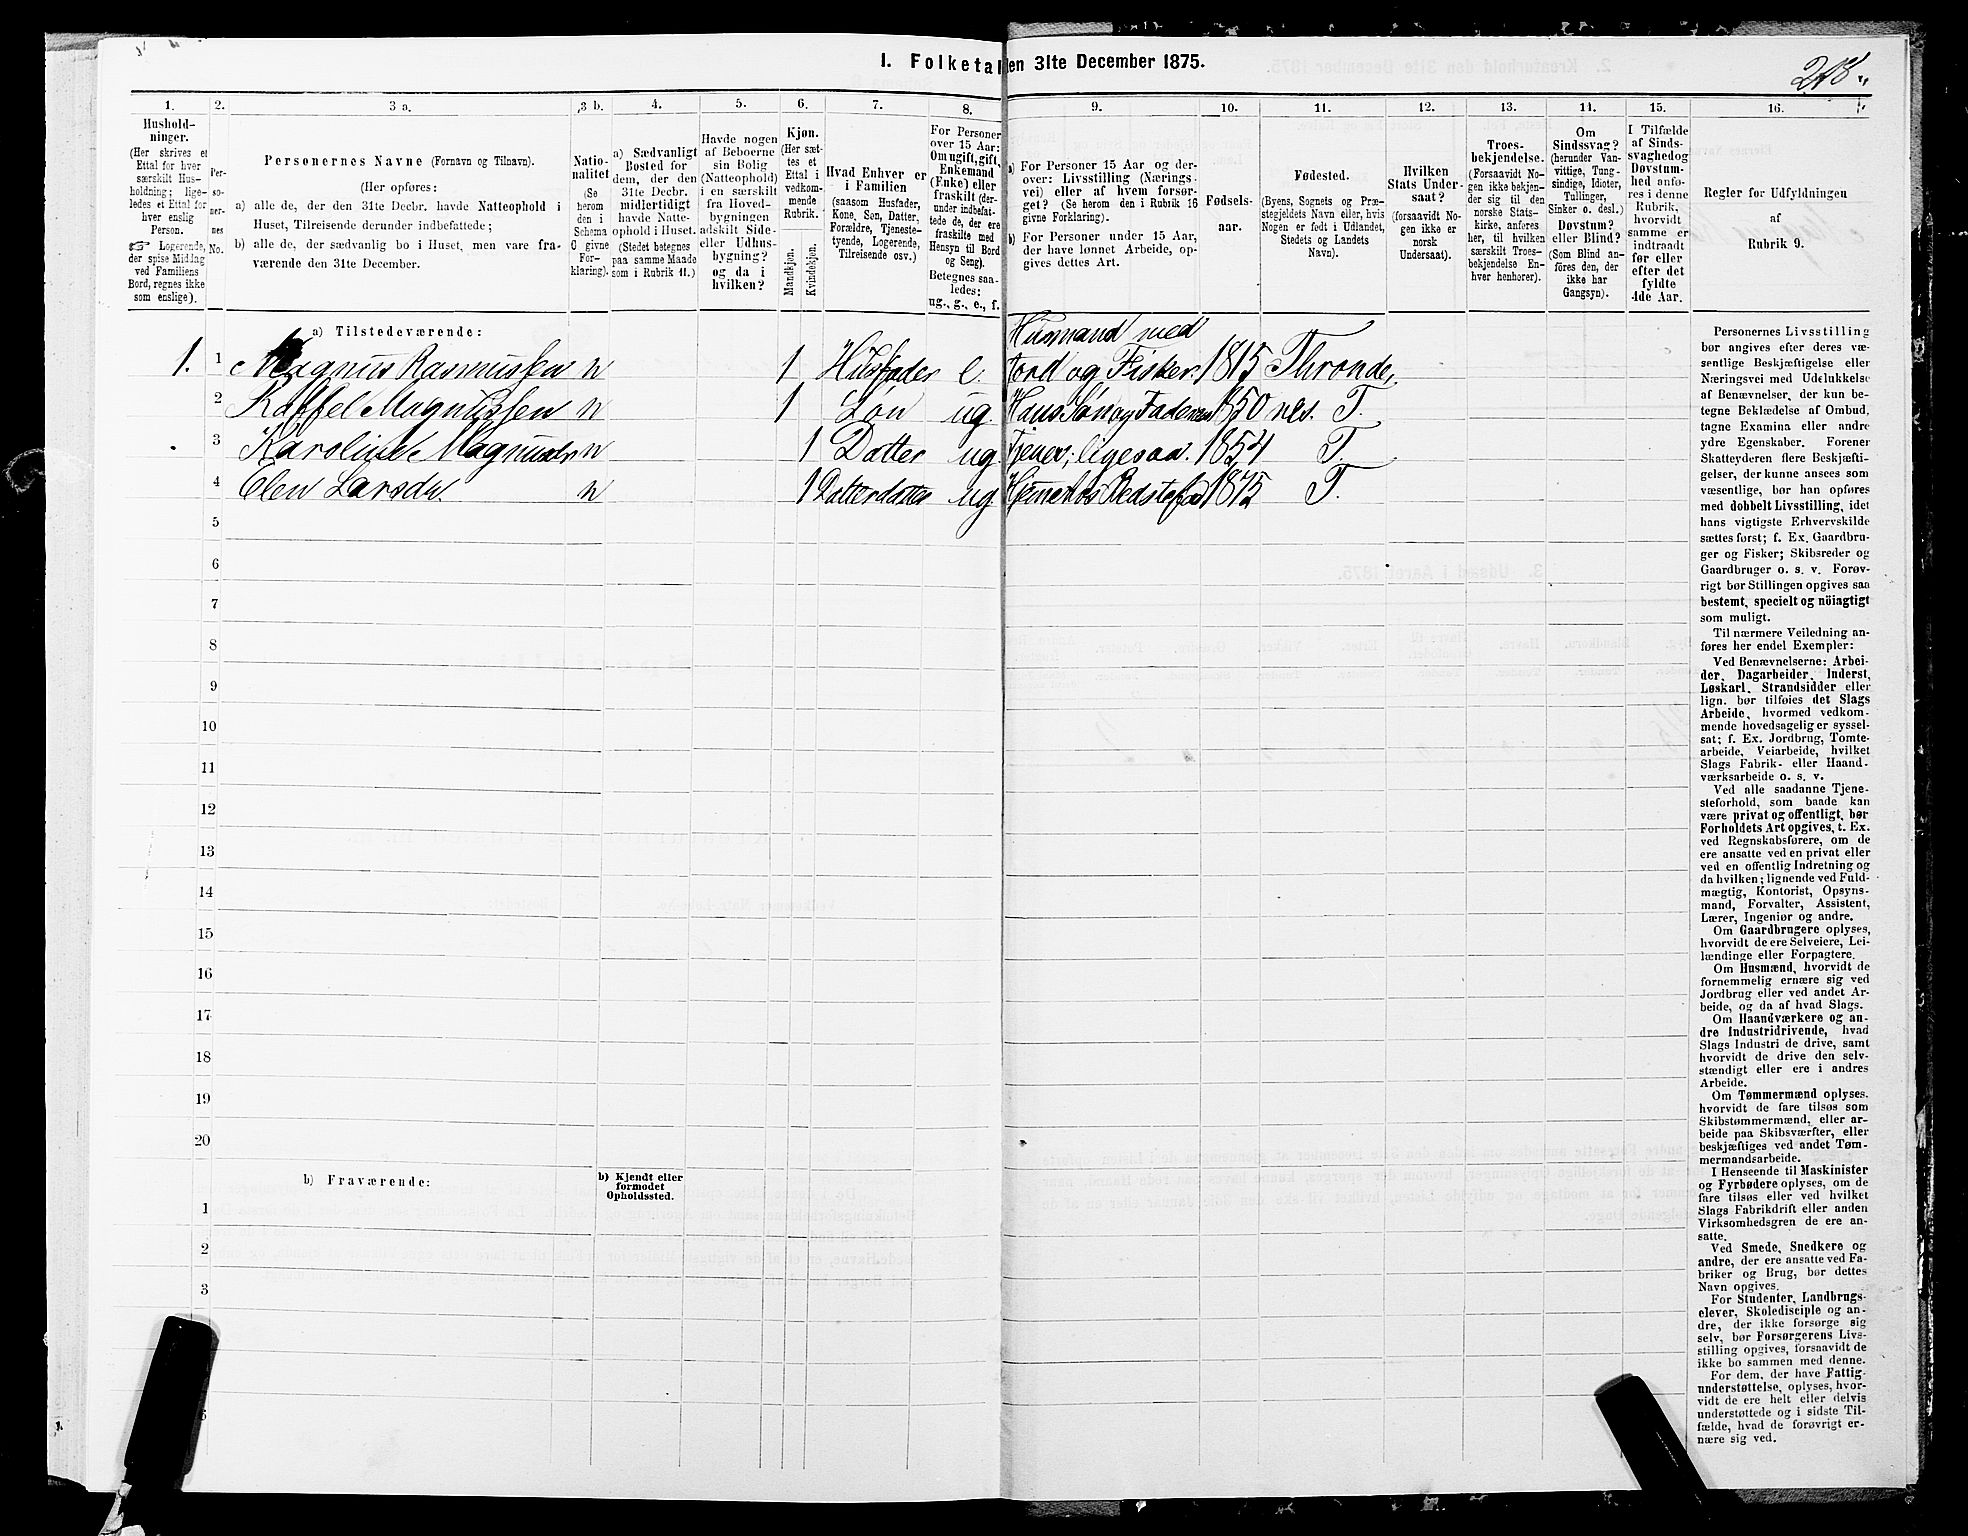 I. Folketal den 31te December 1875.
218
1. 2. 3 a. 3 b. 4. 5. 6. 7. 8. 9. 10. 11. 12. 13. 14. 15. 16.
Hushold-
ninger.
(Her skrives et
Ettal for hver
særskilt Hus-
holdning; lige-
ledes et Ettal for
hver enslig
Person.
☞ Logerende,
der spise Middag
ved Familiens
Bord, regnes ikke
som enslige).
Per-
so-
ner-
nes
No.
Personernes Navne (Fornavn og Tilnavn).
(Her opføres:
a) alle de, der den 31te Decbr. havde Natteophold i
Huset, Tilreisende derunder indbefattede;
b) alle de, der sædvanlig bo i Huset, men vare fra-
værende den 31te December.
Natio-
nalitet
(Se
herom
den i
Schema
C givne
For-
klaring).
a) Sædvanligt
Bosted for
dem, der den
31te Decbr.
midlertidigt
havde Natte-
ophold i Huset.
(Stedet betegnes
paa samme Maade
som i Rubrik 11.)
Havde nogen
af Beboerne
sin Bolig
(Natteophold)
i en særskilt
fra Hoved-
bygningen
adskilt Side-
eller Udhus-
bygning?
og da i
hvilken?
Kjøn.
(Her sæt-
tes et
Ettal i
vedkom-
mende
Rubrik.
Mandkjøn.
Kvindekjøn.
Hvad Enhver er
i Familien
(saasom Husfader,
Kone, Søn, Datter,
Forældre, Tjeneste-
tyende, Logerende,
Tilreisende osv.)
For Personer
over 15 Aar:
Om ugift, gift,
Enkemand
(Enke) eller
fraskilt (der-
under indbefat-
tede de, der ere
fraskilte med
Hensyn til Bord
og Seng).
Betegnes saa-
ledes:
ug., g., e., f.
a) For Personer 15 Aar og der-
over: Livsstilling (Nærings-
vei) eller af hvem forsør-
get? (Se herom den i Rubrik 16
givne Forklaring).
b) For Personer under 15 Aar,
der have lønnet Arbeide, op-
gives dettes Art.
Fødsels-
aar.
Fødested.
(Byens, Sognets og Præ-
stegjeldets Navn eller, hvis
Nogen er født i Udlandet,
Stedets og Landets
Navn).
Hvilken
Stats Under-
saat?
(forsaavidt No-
gen ikke er
norsk
Undersaat).
Troes-
bekjendelse.
(Forsaavidt No-
gen ikke bekjen-
der sig til den
norske Stats-
kirke, anføres
her, til hvilken
særskilt Troes-
bekjendelse En-
hver henhører).
Om
Sindssvag?
(herunder Van-
vittige, Tung-
sindige, Idioter,
Tullinger,
Sinker o. desl.)
Døvstum?
eller Blind?
(Som Blind an-
føres den, der
ikke har
Gangsyn).
I Tilfælde
af Sinds-
svaghedog
Døvstum-
hed anfø-
res i denne
Rubrik,
hvorvidt
samme er
indtraadt
før eller
efter det
fyldte
4de Aar.
Regler for Udfyldningen
af
Rubrik 9.
a) Tilstedeværende:
Husmand med
1. 1 Magnus Rasmussen n 1 Husfader e. Jord og Fisker. 1815 Thronde
2 Raffel Magnussen n 1 Søn ug. Hans Søn og Faderens 1850 T.
3 Karoline Magnusdr n 1 Datter ug. Tjener; ligesaa. 1854 T.
4 Elen Larsdr n 1 Datterdatter ug 1875 T.
5
6
7
8
9
10
11
12
13
14
15
16
17
18
19
20
b) Fraværende:
b) Kjendt eller
formodet
Opholdssted.
1
2
3
5
Personernes Livsstilling
bør angives efter deres væ-
sentlige Beskjæftigelse eller
Næringsvei med Udelukkelse
af Benævnelser, der kun be-
tegne Beklædelse af Ombud,
tagne Examina eller andre
ydre Egenskaber. Forener
Skatteyderen flere Beskjæfti-
gelser, der kunne ansees som
væsentlige, bør han opføres
med dobbelt Livsstilling, idet
hans vigtigste Erhvervskilde
sættes først; f. Ex. Gaardbru-
ger og Fisker; Skibsreder og
Gaardbruger o. s. v. Forøv-
rigt bør Stillingen opgives saa
bestemt, specielt og nöiagtigt
som muligt.
Til nærmere Veiledning an-
føres her endel Exempler:
Ved Benævnelserne: Arbei-
der, Dagarbeider, Inderst,
Løskarl, Strandsidder eller
lign. bør tilføies det Slags
Arbeide, hvormed vedkom-
mende hovedsagelig er syssel-
sat; f. Ex. Jordbrug, Tomte-
arbeide, Veiarbeide, hvilket
Slags Fabrik- eller Haand-
værksarbeide o. s. v.
Ved alle saadanne Tjene-
steforhold, som baade kan
være privat og offentligt, bør
Forholdets Art opgives, t. Ex.
ved Regnskabsførere, om de
ere ansatte ved en privat eller
ved en offentlig Indretning og
da hvilken; lignende ved Fuld-
mægtig, Kontorist, Opsyns-
mand, Forvalter, Assistent,
Lærer, Ingeniør og andre.
Om Gaardbrugere oplyses,
hvorvidt de ere Selveiere, Lei-
lændinge eller Forpagtere.
Om Husmænd, hvorvidt de
fornemmelig ernære sig ved
Jordbrug eller ved andet Ar-
beide, og da af hvad Slags.
Om Haandværkere og an-
dre Industridrivende, hvad
Slags Industri de drive, samt
hvorvidt de drive den selv-
stændigt eller ere i andres
Arbeide.
Om Tømmermænd oplyses,
hvorvidt de fare tilsøs som
Skibstømmermænd, eller ar-
beide paa Skibsværfter, eller
beskjæftiges ved andet Tøm-
mermandsarbeide.
I Henseende til Maskinister
og Fyrbødere oplyses, om de
fare tilsøs eller ved hvilket
Slags Fabrikdrift eller anden
Virksomhedsgren de ere an-
satte.
Ved Smede, Snedkere og
andre, der ere ansatte ved Fa-
briker og Brug, bør dettes
Navn opgives.
For Studenter, Landbrugs-
elever, Skoledisciple og an-
dre, der ikke forsørge sig
selv, bør Forsørgerens Livs-
stilling opgives, forsaavidt de
ikke bo sammen med denne.
For dem, der have Fattig-
understøttelse, oplyses, hvor-
vidt de ere helt eller delvis
understøttede og i sidste Til-
fælde, hvad de forøvrigt er-
nære sig ved.